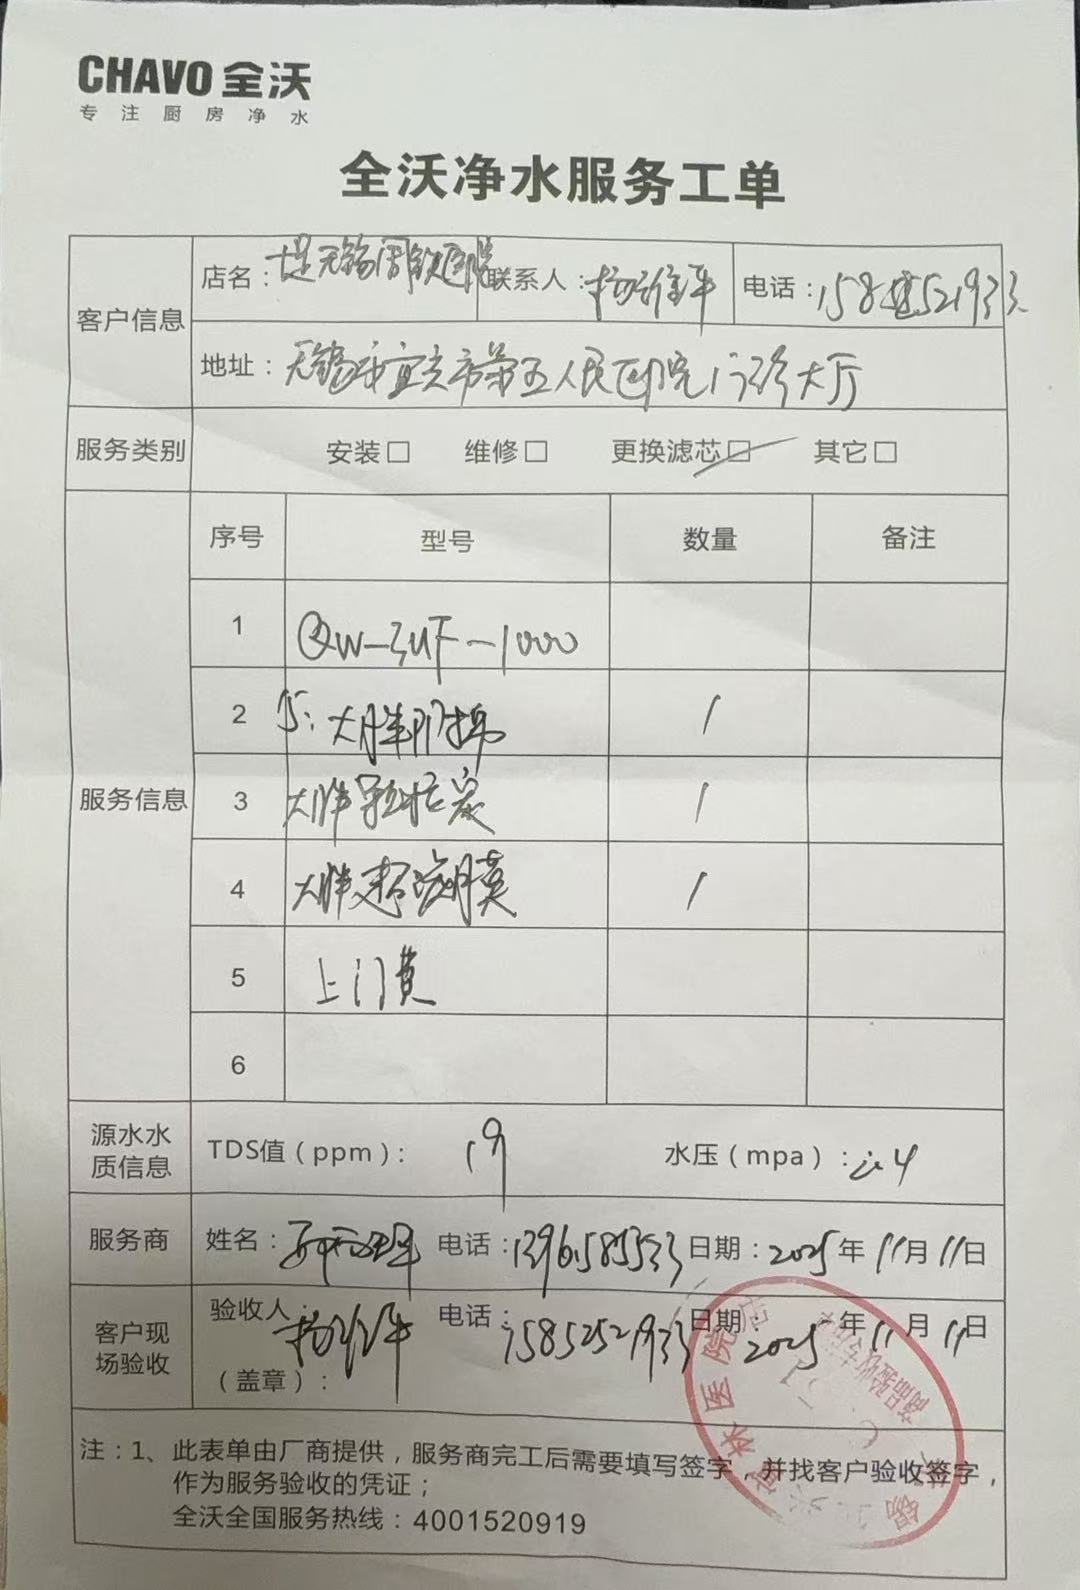 CHAVO 全沃
专注厨房净水
全沃净水服务工单
客户信息
店名： 无锡 医院 联系人： 电话：
地址：无锡市宜兴市第五人民医院门诊大厅
服务类别 安装□ 维修□ 更换滤芯□ 其它□
服务信息
序号 型号 数量 备注
1 QW-3UF-1000
2 大胖 棉 1
3 大胖颗粒炭 1
4 大胖超滤膜 1
5 上门费
6
源水水质信息 TDS值（ppm）：19 水压（mpa）：
服务商 姓名： 电话： 日期：2025年11月11日
客户现场验收 验收人： 电话：15852521933 日期：2025年11月11日
（盖章）：
医院 店
商品验收专用
注：1、此表单由厂商提供，服务商完工后需要填写签字，并找客户验收签字，
作为服务验收的凭证；
全沃全国服务热线：4001520919